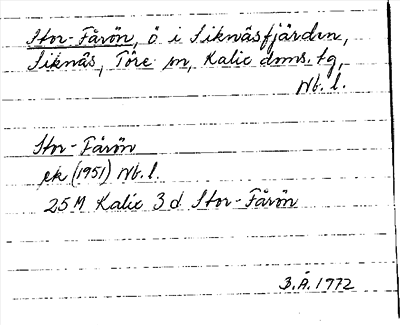 Stor-Fårön, ö i Siknäsfjärden,
Siknäs, Töre sn, Kalix doms. tg,
Nb. l.
Stor-Fårön
ek (1951) Nb. l.
25M Kalix 3d Stor-Fårön
B.Å. 1972